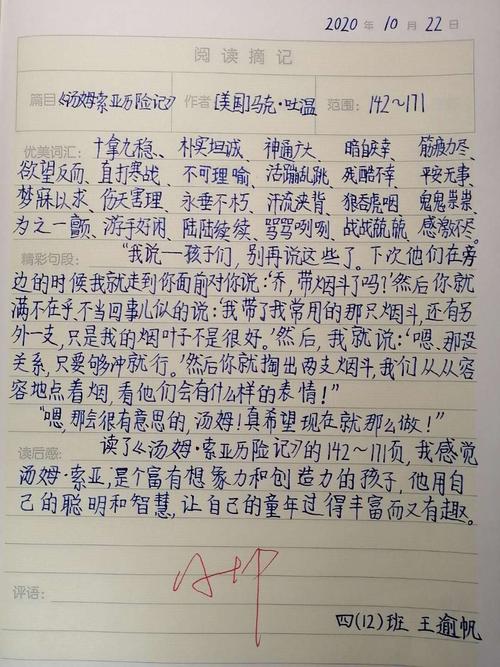 2020年10月22日
阅读摘记
篇目 《汤姆索亚历险记》 作者 [美国]马克·吐温 范围: 142~171
优美词汇: 十拿九稳、 朴实坦诚、 神通广大、 暗自庆幸、 筋疲力尽、
欲望反而、 直打寒战、 不可理喻、 活蹦乱跳、 残酷不幸、 平安无事、
梦寐以求、 伤天害理、 永垂不朽、 汗流浃背、 狼吞虎咽、 鬼鬼祟祟、
为之一颤、 游手好闲、 陆陆续续、 骂骂咧咧、 战战兢兢、 感激不尽。
精彩句段: “我说—孩子们,别再说这些了。下次他们在旁
边的时候我就走到你面前对你说:‘乔,带烟斗了吗?’然后你就
满不在乎、不当回事儿似的说:‘我带了我常用的那只烟斗,还有另
外一支,只是我的烟叶子不是很好。’然后,我就说:‘嗯、那没
关系,只要够冲就行。’然后你就掏出两支烟斗,我们从从容
容地点着烟,看他们会有什么样的表情!”
“嗯,那会很有意思的,汤姆!真希望现在就那么做!”
读后感: 读了《汤姆·索亚历险记》的142~171页,我感觉
汤姆·索亚,是个富有想象力和创造力的孩子,他用自
己的聪明和智慧,让自己的童年过得丰富而又有趣。
评语:
四(12)班 王逾帆